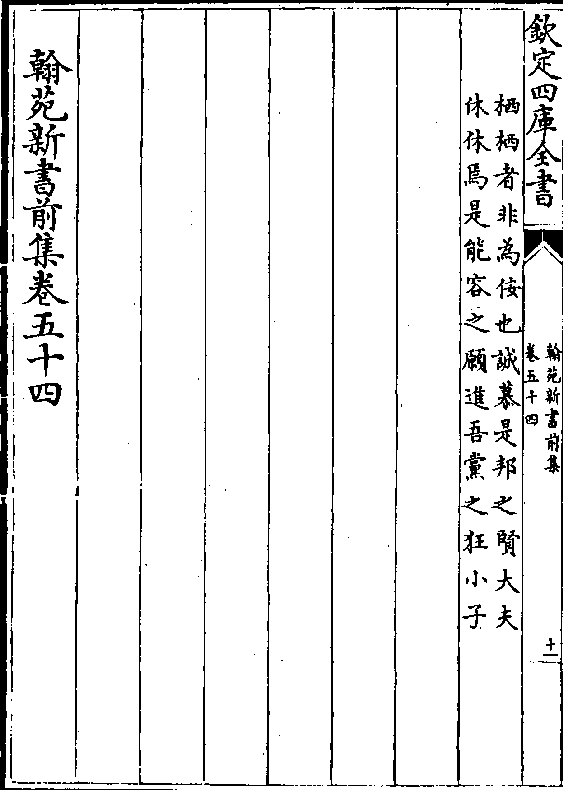 欽定四庫全書
翰苑新書前集
卷五十四
十一
栖栖者非為佞也誠慕是邦之賢大夫
休休焉是能容之願進吾黨之狂小子
翰苑新書前集卷五十四